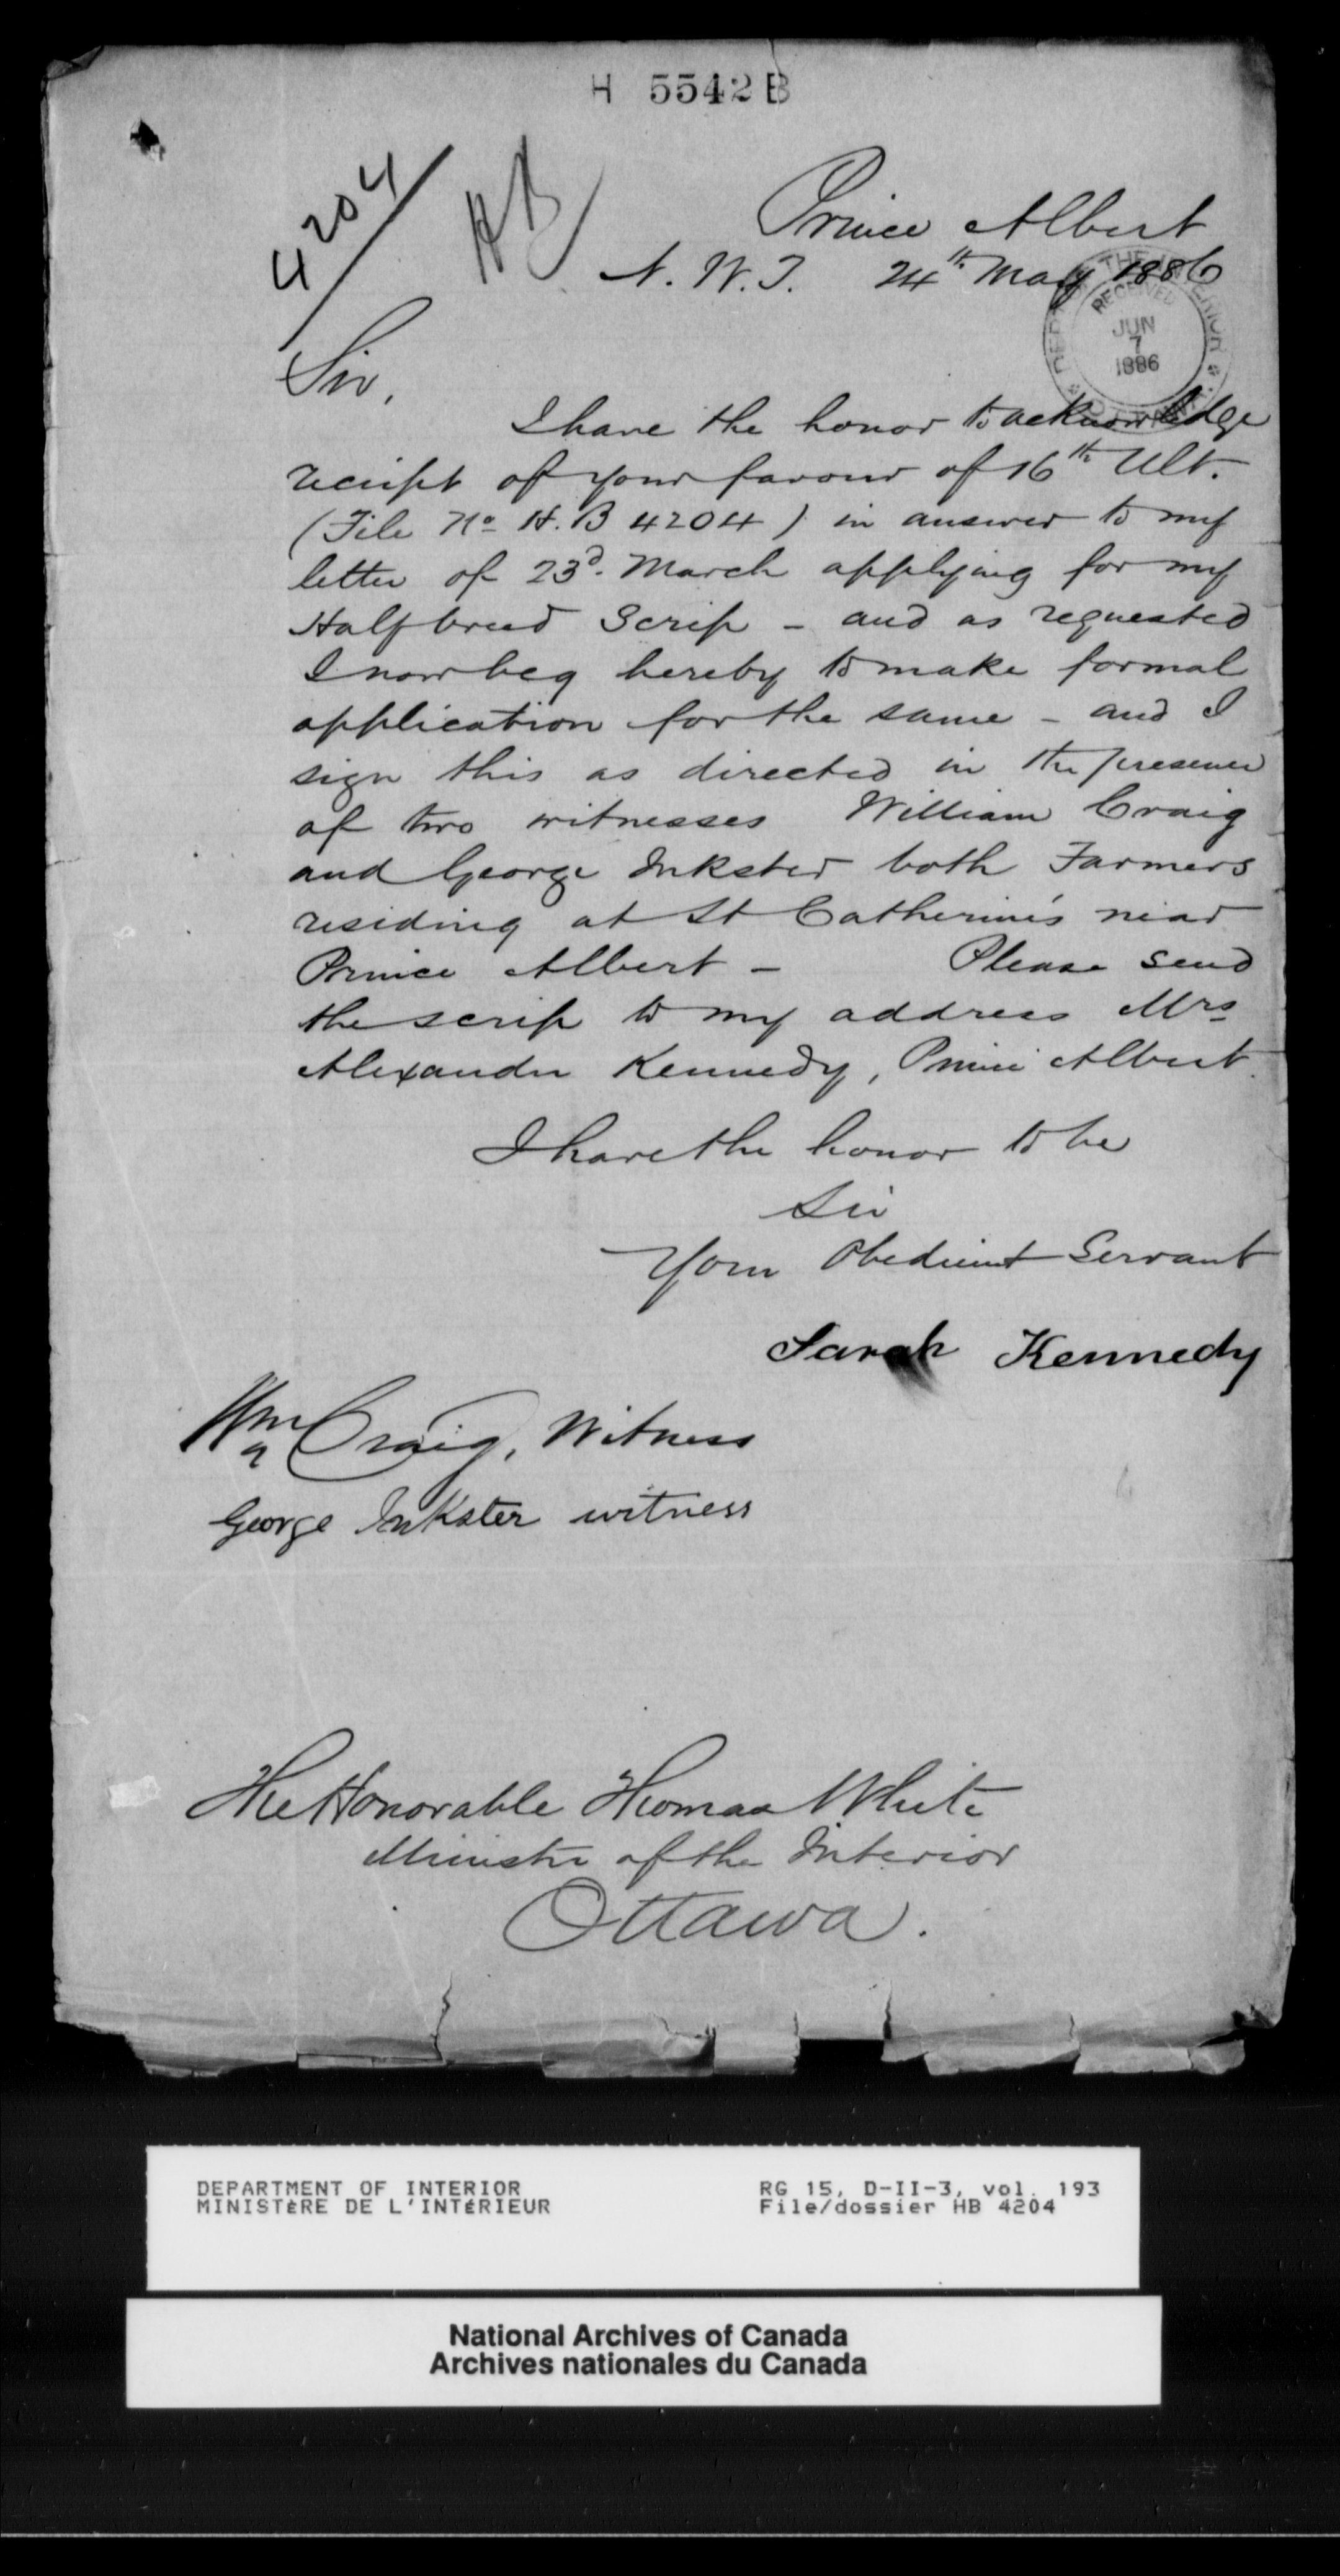 H 5542 B
4204
HB
Prince Albert
N. W. T. 24th May 1886
RECEIVED
JUN
7
1886
Sir,
I have the honor to acknowledge
receipt of your favour of 16th Ult.
(File No H. B 4204) in answer to my
letter of 23d. March applying for my
Halfbreed Scrip - and as requested
I now beg hereby to make formal
application for the same - and I
sign this as directed in the presence
of two witnesses William Craig
and George Inkster both Farmers
residing at St Catherine's near
Prince Albert - Please send
the scrip to my address Mrs
Alexander Kennedy, Prince Albert.
I have the honor to be
Sir
Your Obedient Servant
Sarah Kennedy
Wm Craig, Witness
George Inkster witness
The Honorable Thomas White
Minister of the Interior
Ottawa.
DEPARTMENT OF INTERIOR RG 15, D-II-3, vol. 193
MINISTÈRE DE L'INTÉRIEUR File/dossier HB 4204
National Archives of Canada
Archives nationales du Canada